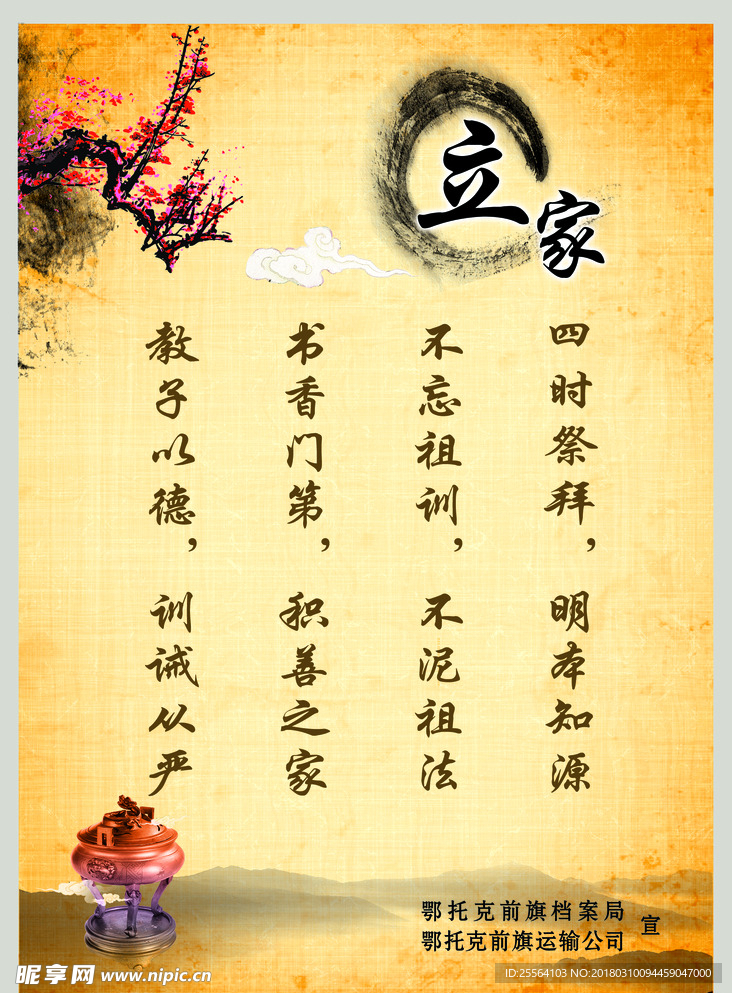 立家
四时祭拜，明本知源
不忘祖训，不泥祖法
书香门第，积善之家
教子以德，训诫从严
鄂托克前旗档案局
鄂托克前旗运输公司
宣
昵享网 www.nipic.cn
ID:25564103 NO:20180310094459047000